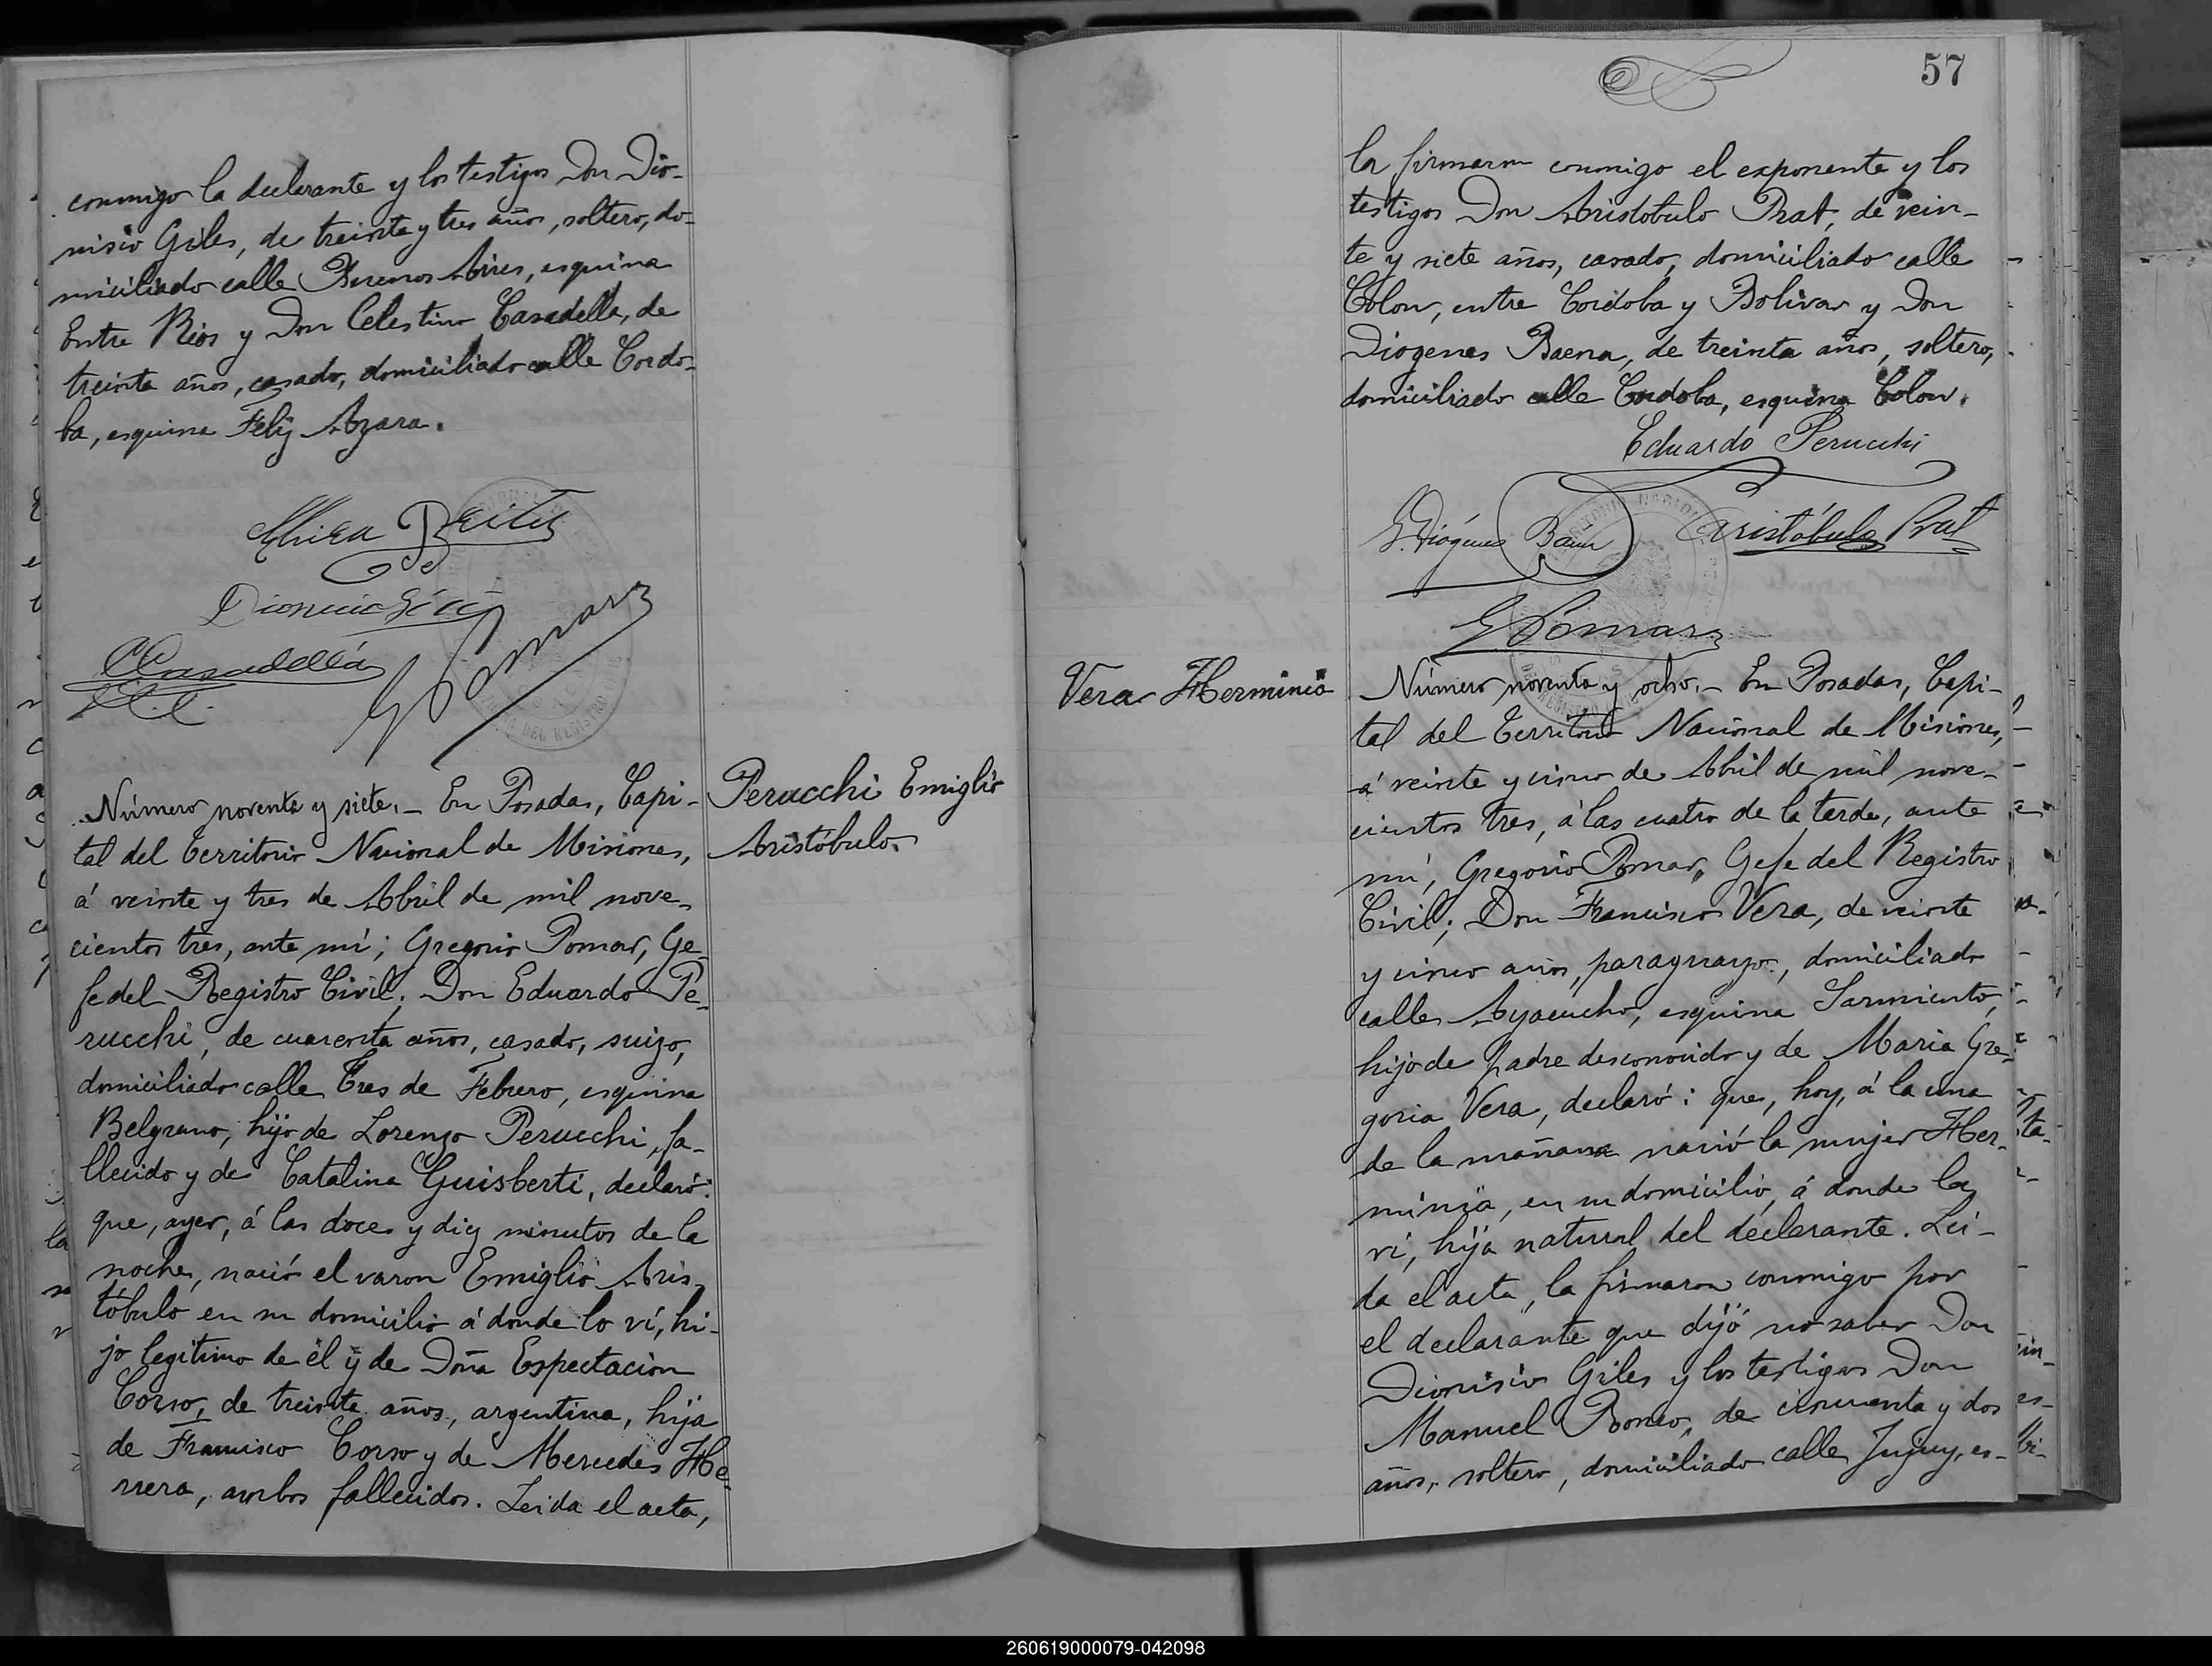 conmigo la declarante y los testigos Don Dio-
nisio Giles, de treinta y tres años, soltero, do-
miciliado calle Buenos Aires, esquina
Entre Rios y Don Celestino Casadella, de
treinta años, casado, domiciliado calle Cordo-
ba, esquina Felix Azara.
Dionisio Giles
CCasadella
GPomar
Número noventa y siete.- En Posadas, Capi-
tal del Territorio Nacional de Misiones,
á veinte y tres de Abril de mil nove-
cientos tres, ante mí; Gregorio Pomar, Ge-
fe del Registro Civil; Don Eduardo Pe-
rucchi, de cuarenta años, casado, suizo,
domiciliado calle Tres de Febrero, esquina
Belgrano, hijo de Lorenzo Perucchi, fa-
llecido y de Catalina Guisberti, declaró:
que, ayer, á las doce y diez minutos de la
noche, nació el varon Emiglio Aris-
tóbulo en su domicilio á donde lo ví, hi-
jo legitimo de él y de Doña Espectacion
Corso, de treinta años, argentina, hija
de Francisco Corso y de Mercedes He-
rrera, ambos fallecidos. Leida el acta,
Perucchi Emiglio
Aristóbulo.
57
la firmaron conmigo el exponente y los
testigos Don Aristobulo Prat, de vein-
te y siete años, casado, domiciliado calle
Colon, entre Cordoba y Bolivar y Don
Diogenes Baena, de treinta años, soltero,
domiciliado calle Cordoba, esquina Colon.
Eduardo Perucchi
G. Diógenes Baena
Aristóbulo Prat
GPomar
Vera Herminia
Número noventa y ocho.- En Posadas, Capi-
tal del Territorio Nacional de Misiones,
á veinte y cinco de Abril de mil nove-
cientos tres, á las cuatro de la tarde, ante
mí, Gregorio Pomar, Gefe del Registro
Civil; Don Francisco Vera, de veinte
y cinco años, paraguayo, domiciliado
calle Ayacucho, esquina Sarmiento,
hijo de padre desconocido y de Maria Gre-
goria Vera, declaró: que, hoy, á la una
de la mañana nació la mujer Her-
minia, en su domicilio, á donde la
ví, hija natural del declarante. Lei-
da el acta, la firmaron conmigo por
el declarante que dijo no saber Don
Dionisio Giles y los testigos Don
Manuel Romeo, de cincuenta y dos
años, soltero, domiciliado calle Jujuy, es-
260619000079-042098